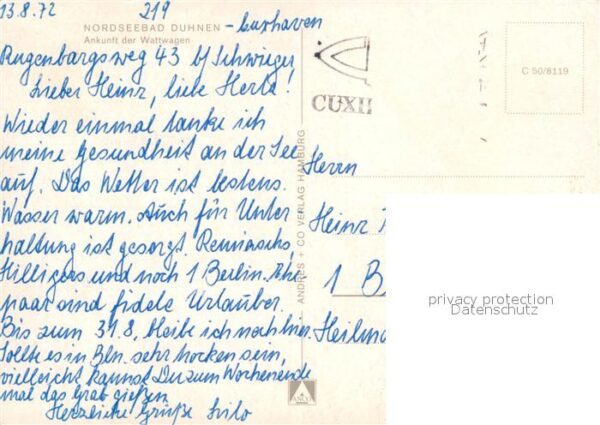 13.8.72 219
NORDSEEBAD DUHNEN – Cuxhaven
Ankunft der Wattwagen
Rugenbargsweg 43 b/ Schwieger,
Lieber Heinz, liebe Herta!
Wieder einmal tanke ich
meine Gesundheit an der See
auf. Das Wetter ist bestens.
Wasser warm. Auch für Unter
haltung ist gesorgt.
Hilligers und noch 1 Berlin. Ehe
paar sind fidele Urlauber.
Bis zum 31.8. bleibe ich noch hier.
Sollte es in Bln. sehr trocken sein,
vielleicht kannst Du zum Wochenende
mal das Grab gießen
Herzliche Grüße Lilo
ANDRES + CO VERLAG HAMBURG
ANCO
CUXH
C 50/8119
Herrn
Heinz
1 B
privacy protection
Datenschutz